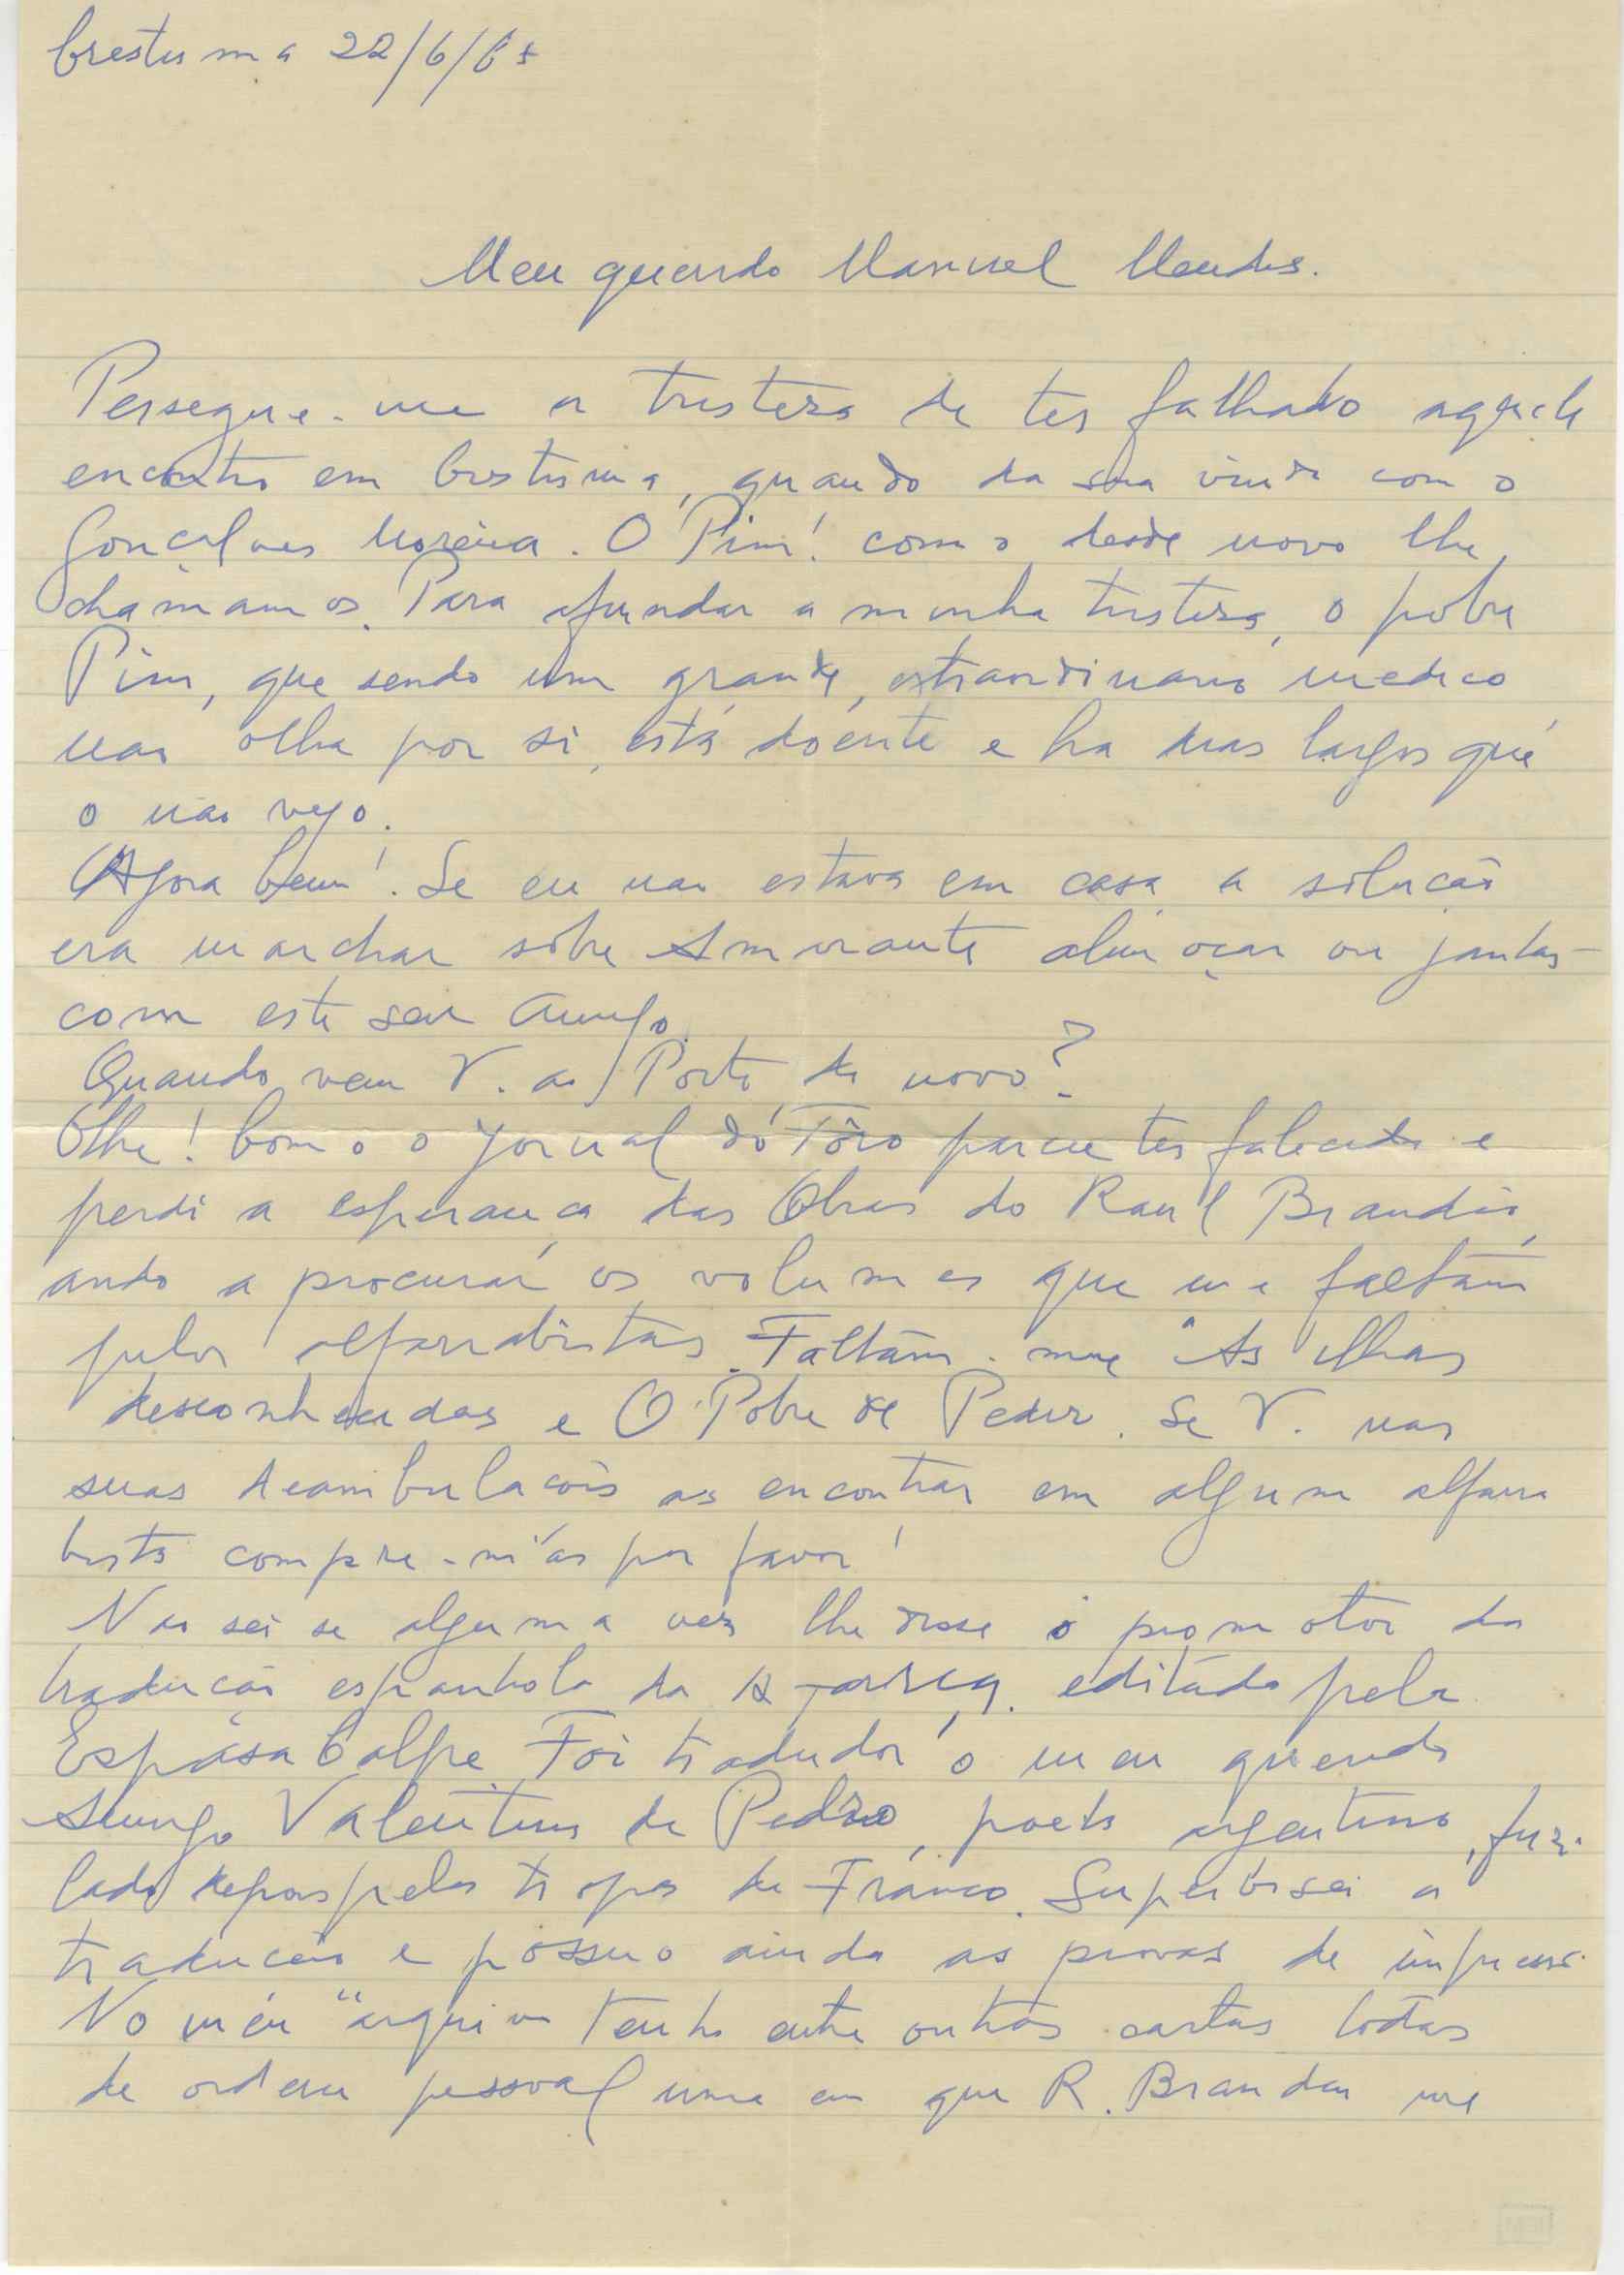 Crestuma 22/6/6
Meu querido Manuel Mendes.
Persegue-me a tristeza de ter falhado aquele
encontro em Crestuma, quando da sua vinda com o
Gonçalves Moreira. O Pim! como desde novo lhe
chamamos. Para afundar a minha tristeza, o pobre
Pim, que sendo um grande, extraordinario medico
não olha por si, está doente e ha dias largos que
o não vejo.
Agora bem! Se eu não estava em casa a solução
era marchar sôbre Amarante almoçar ou jantar
com este seu amigo.
Quando vem V. ao Porto de novo?
Olhe! Como o Jornal do Fôro parece ter falecido e
perdi a esperança das Obras do Raul Brandão,
ando a procurar os volumes que me faltam
pelos alfarrabistas. Faltam-me "As ilhas
desconhecidas e O Pobre de Pedir. Se V. nas
suas deambulacões as encontrar em algum alfarra
bista compre-m'as por favor!
Não sei se alguma vez lhe disse o promotor da
traducão espanhola da A Farsa, editada pela
Espasa Calpe. Foi tradudor o meu querido
Amigo Valentim de Pedro, poeta argentino, fuzi-
lado depois pelas tropas de Franco. Superbisei a
traducão e possuo ainda as provas de
No meu "arquivo tenho entre outras cartas todas
de ordem pessoal uma em que R. Brandão me